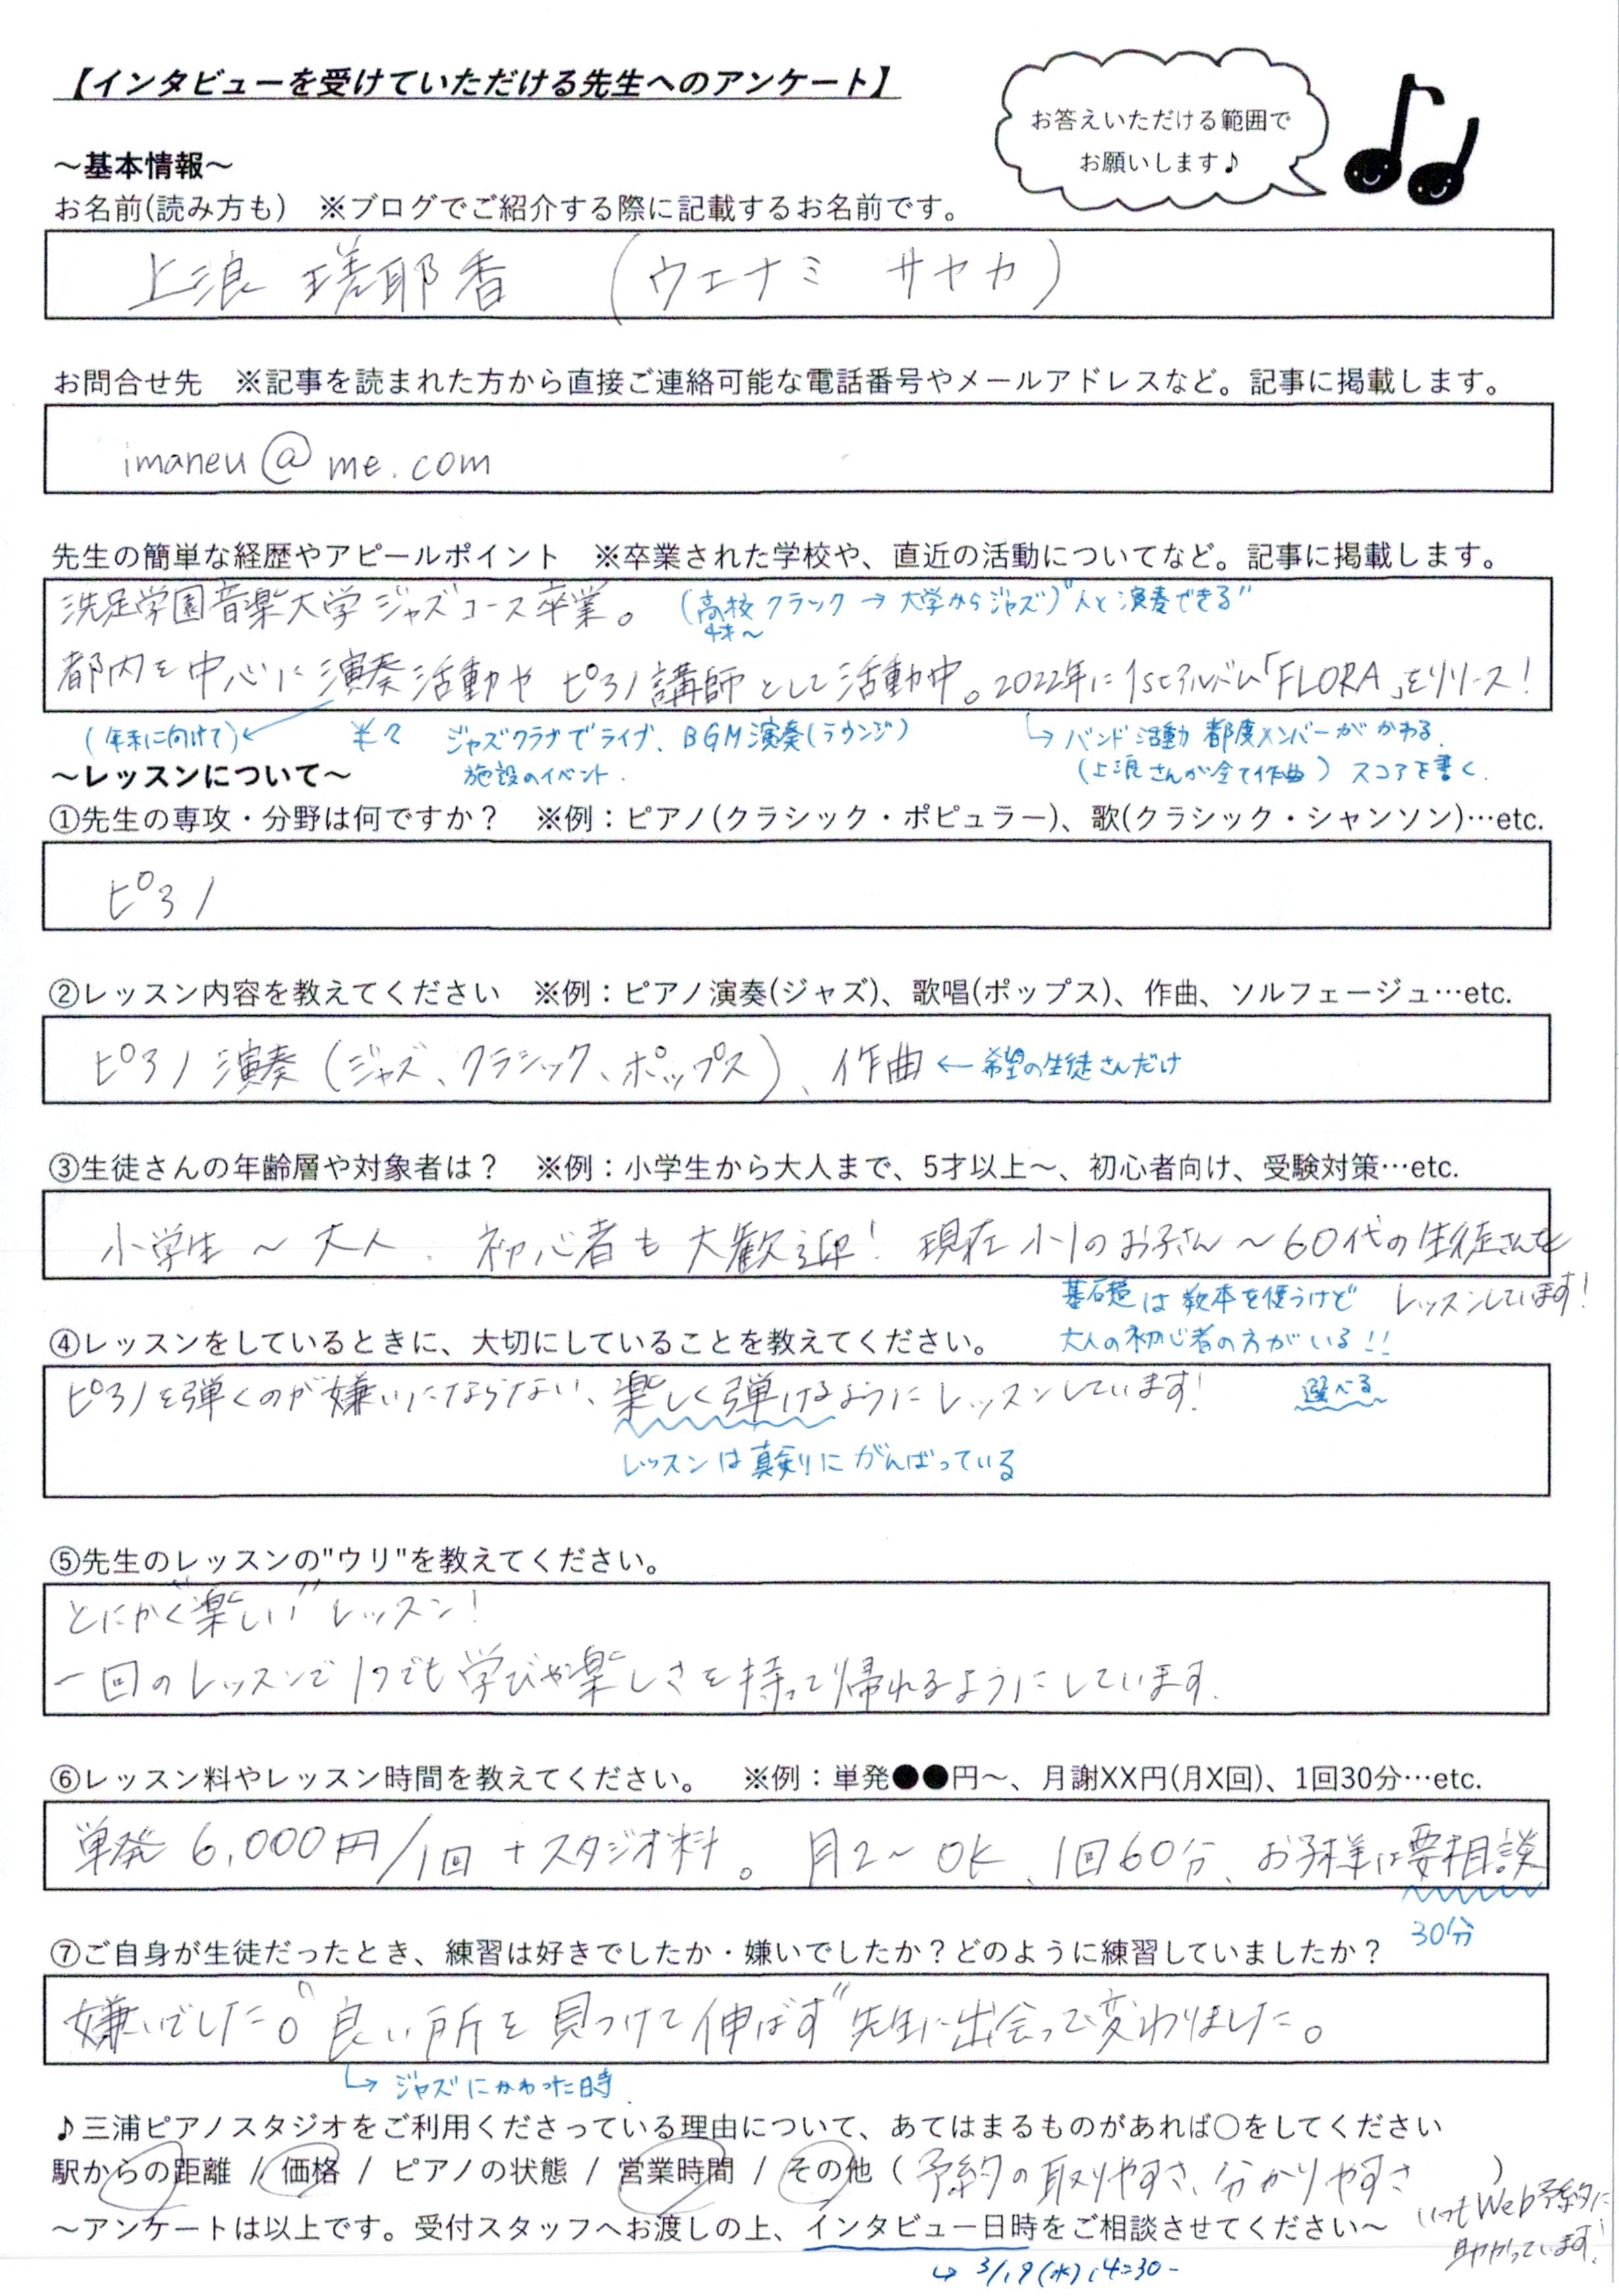 【インタビューを受けていただける先生へのアンケート】
お答えいただける範囲で
お願いします♪
～基本情報～
お名前(読み方も)　※ブログでご紹介する際に記載するお名前です。
上浪 瑳耶香 (ウエナミ サヤカ)
お問合せ先　※記事を読まれた方から直接ご連絡可能な電話番号やメールアドレスなど。記事に掲載します。
imaneu@me.com
先生の簡単な経歴やアピールポイント　※卒業された学校や、直近の活動についてなど。記事に掲載します。
洗足学園音楽大学 ジャズコース卒業。 (高校 クラシック → 大学からジャズ) "人と演奏できる"
4才～
都内を中心に演奏活動や ピアノ講師として活動中。2022年に1stアルバム「FLORA」をリリース!
(年末に向けて) ジャズクラブでライブ、BGM演奏(ラウンジ) ↳ バンド活動 都度メンバーがかわる.
施設のイベント. (上浪さんが全て作曲) スコアを書く.
～レッスンについて～
①先生の専攻・分野は何ですか？　※例：ピアノ(クラシック・ポピュラー)、歌(クラシック・シャンソン)…etc.
ピアノ
②レッスン内容を教えてください　※例：ピアノ演奏(ジャズ)、歌唱(ポップス)、作曲、ソルフェージュ…etc.
ピアノ演奏 (ジャズ、クラシック、ポップス)、作曲 ← 希望の生徒さんだけ
③生徒さんの年齢層や対象者は？　※例：小学生から大人まで、5才以上～、初心者向け、受験対策…etc.
小学生 ～ 大人. 初心者も大歓迎! 現在 小1のお子さん～60代の生徒さんを
レッスンしています!
基礎は教本を使うけど
大人の初心者の方がいる!!
選べる
④レッスンをしているときに、大切にしていることを教えてください。
ピアノを弾くのが嫌いにならない、楽しく弾けるようにレッスンしています!
レッスンは真剣にがんばっている
⑤先生のレッスンの"ウリ"を教えてください。
とにかく"楽しい"レッスン!
一回のレッスンで1つでも学びや楽しさを持って帰れるようにしています.
⑥レッスン料やレッスン時間を教えてください。　※例：単発●●円～、月謝XX円(月X回)、1回30分…etc.
単発 6,000円/1回 + スタジオ料。月2～OK、1回60分、お子様は要相談
30分
⑦ご自身が生徒だったとき、練習は好きでしたか・嫌いでしたか？どのように練習していましたか？
嫌いでした。"良い所を見つけて伸ばす"先生に出会って変わりました。
↳ ジャズにかわった時
♪三浦ピアノスタジオをご利用くださっている理由について、あてはまるものがあれば〇をしてください
駅からの距離 / 価格 / ピアノの状態 / 営業時間 / その他 ( 予約の取りやすさ、分かりやすさ )
いつもWeb予約に
助かっています!
～アンケートは以上です。受付スタッフへお渡しの上、インタビュー日時をご相談させてください～
↳ 3/19(水) 14:30-